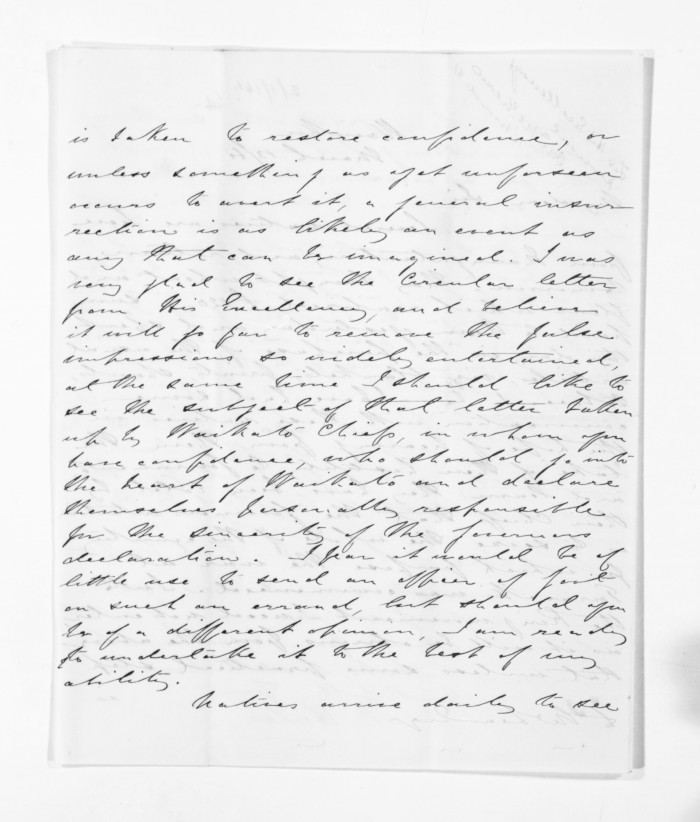 is taken to restore confidence, or
unless something as yet unforseen
occurs to avert it, a general insur-
rection is as likely an event as
any that can be imagined. I was
very glad to see the Circular letter
from His Excellency, and believe
it will go far to remove the false
impressions so widely entertained,
at the same time I should like to
see the subject of that letter taken
up by Waikato Chiefs, in whom you
have confidence, who should go into
the heart of Waikato and declare
themselves personally responsible
for the sincerity of the Governors
declaration. I fear it would be of
little use to send an officer of Govt
on such an errand, but should you
be of a different opinion, I am ready
to undertake it to the best of my
ability.
Natives arrive daily to see